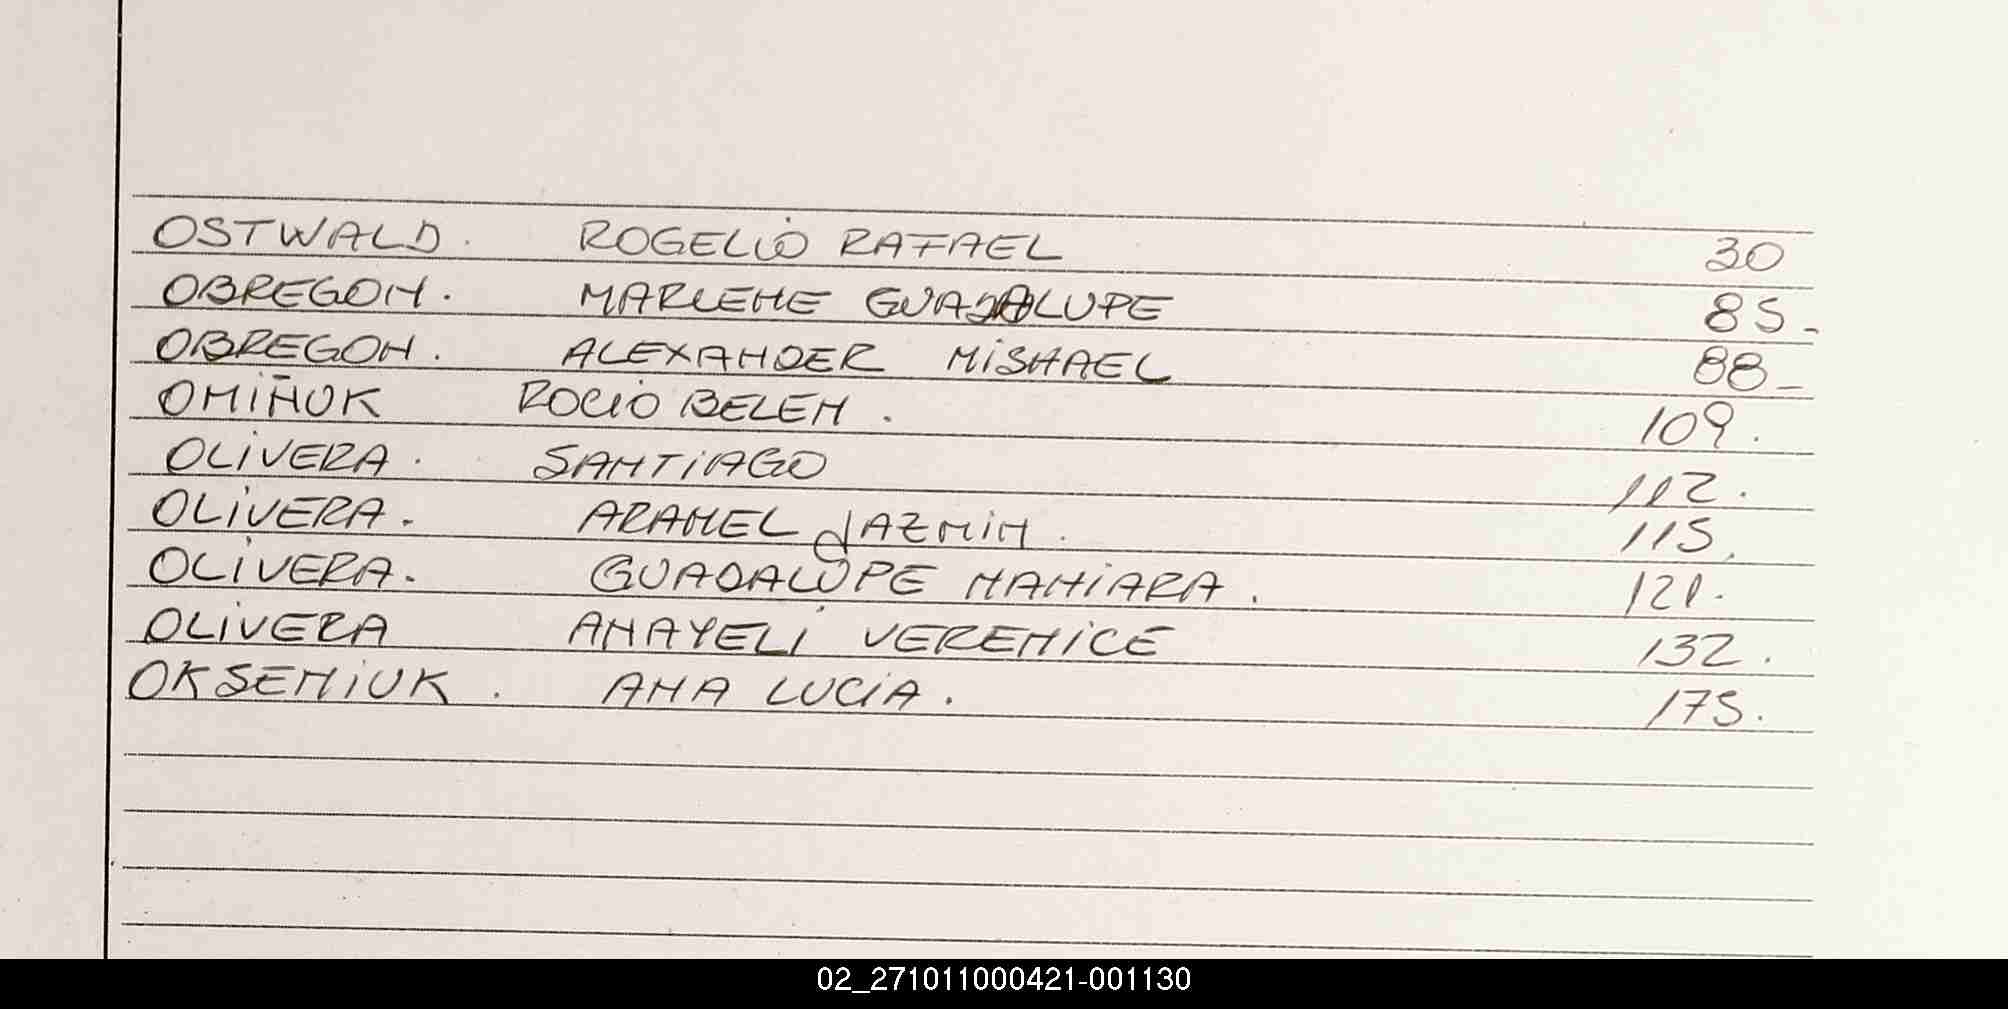 OSTWALD. ROGELIO RAFAEL 30
OBREGON. MARLENE GUADALUPE 85-
OBREGON. ALEXANDER MISHAEL 88-
OMIÑUK ROCIO BELEN. 109.
OLIVERA. SANTIAGO 112.
OLIVERA. ARAMEL JAZMIN. 115.
OLIVERA. GUADALUPE NAHIARA. 121.
OLIVERA ANAYELI VERENICE 132.
OKSENIUK. ANA LUCIA. 175.
02_271011000421-001130